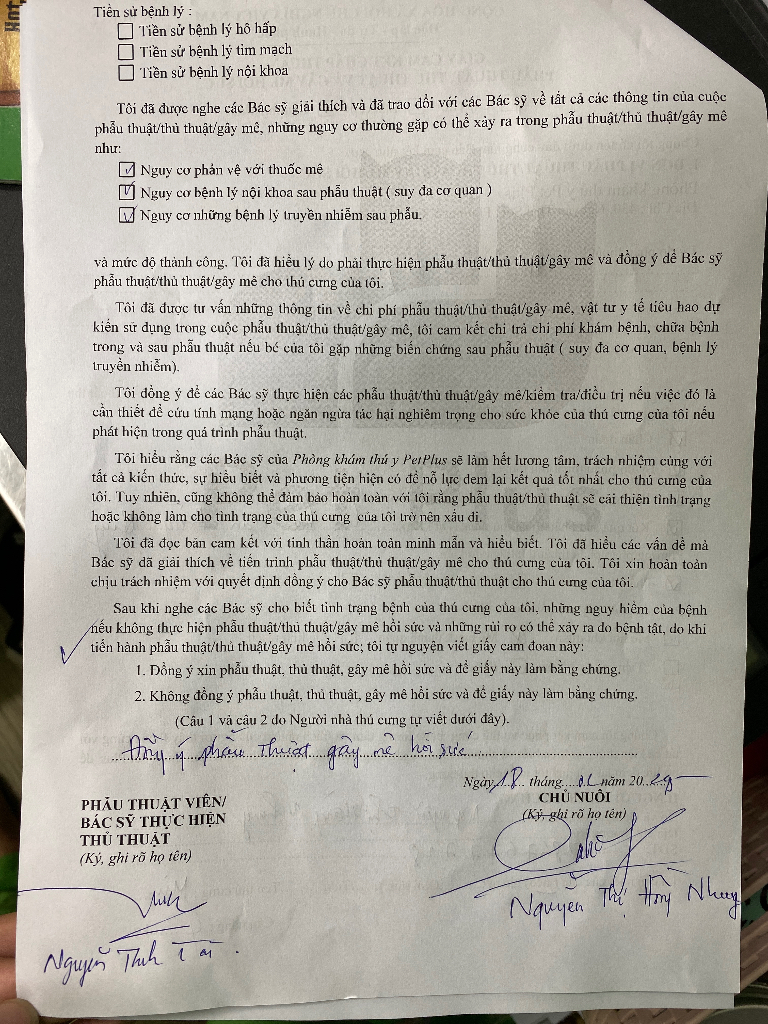 Tiền sử bệnh lý :
Tiền sử bệnh lý hô hấp
Tiền sử bệnh lý tim mạch
Tiền sử bệnh lý nội khoa
Tôi đã được nghe các Bác sỹ giải thích và đã trao đổi với các Bác sỹ về tất cả các thông tin của cuộc
phẫu thuật/thủ thuật/gây mê, những nguy cơ thường gặp có thể xảy ra trong phẫu thuật/thủ thuật/gây mê
như:
Nguy cơ phản vệ với thuốc mê
Nguy cơ bệnh lý nội khoa sau phẫu thuật ( suy đa cơ quan )
Nguy cơ những bệnh lý truyền nhiễm sau phẫu.
và mức độ thành công. Tôi đã hiểu lý do phải thực hiện phẫu thuật/thủ thuật/gây mê và đồng ý để Bác sỹ
phẫu thuật/thủ thuật/gây mê cho thú cưng của tôi.
Tôi đã được tư vấn những thông tin về chi phí phẫu thuật/thủ thuật/gây mê, vật tư y tế tiêu hao dự
kiến sử dụng trong cuộc phẫu thuật/thủ thuật/gây mê, tôi cam kết chi trả chi phí khám bệnh, chữa bệnh
trong và sau phẫu thuật nếu bé của tôi gặp những biến chứng sau phẫu thuật ( suy đa cơ quan, bệnh lý
truyền nhiễm).
Tôi đồng ý để các Bác sỹ thực hiện các phẫu thuật/thủ thuật/gây mê/kiểm tra/điều trị nếu việc đó là
cần thiết để cứu tính mạng hoặc ngăn ngừa tác hại nghiêm trọng cho sức khỏe của thú cưng của tôi nếu
phát hiện trong quá trình phẫu thuật.
Tôi hiểu rằng các Bác sỹ của Phòng khám thú y PetPlus sẽ làm hết lương tâm, trách nhiệm cùng với
tất cả kiến thức, sự hiểu biết và phương tiện hiện có để nỗ lực đem lại kết quả tốt nhất cho thú cưng của
tôi. Tuy nhiên, cũng không thể đảm bảo hoàn toàn với tôi rằng phẫu thuật/thủ thuật sẽ cải thiện tình trạng
hoặc không làm cho tình trạng của thú cưng của tôi trở nên xấu đi.
Tôi đã đọc bản cam kết với tinh thần hoàn toàn minh mẫn và hiểu biết. Tôi đã hiểu các vấn đề mà
Bác sỹ đã giải thích về tiến trình phẫu thuật/thủ thuật/gây mê cho thú cưng của tôi. Tôi xin hoàn toàn
chịu trách nhiệm với quyết định đồng ý cho Bác sỹ phẫu thuật/thủ thuật cho thú cưng của tôi.
Sau khi nghe các Bác sỹ cho biết tình trạng bệnh của thú cưng của tôi, những nguy hiểm của bệnh
nếu không thực hiện phẫu thuật/thủ thuật/gây mê hồi sức và những rủi ro có thể xảy ra do bệnh tật, do khi
tiến hành phẫu thuật/thủ thuật/gây mê hồi sức; tôi tự nguyện viết giấy cam đoan này:
1. Đồng ý xin phẫu thuật, thủ thuật, gây mê hồi sức và để giấy này làm bằng chứng.
2. Không đồng ý phẫu thuật, thủ thuật, gây mê hồi sức và để giấy này làm bằng chứng.
(Câu 1 và câu 2 do Người nhà thú cưng tự viết dưới đây).
Đồng ý phẫu thuật gây mê hồi sức
Ngày 18 tháng năm 20
PHẪU THUẬT VIÊN/
BÁC SỸ THỰC HIỆN
THỦ THUẬT
(Ký, ghi rõ họ tên)
CHỦ NUÔI
(Ký, ghi rõ họ tên)
Nguyễn Thị Hồng Nhung
Nguyễn